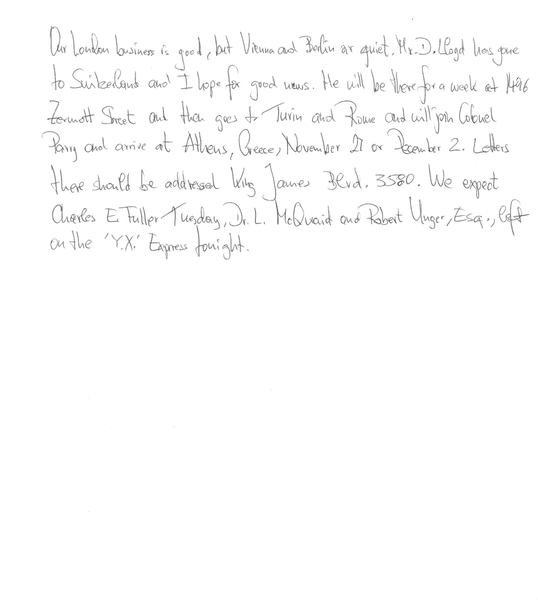 Our London business is good, but Vienna and Berlin ar quiet. Mr. D. Lloyd has gone
to Switzerland and I hope for good news. He will be there for a week at 1496
Zermott Street and then goes to Turin and Rome and will join Colonel
Parry and arrive at Athens, Greece, November 27 or December 2. Letters
there should be addressed King James Blvd. 3580. We expect
Charles E. Fuller Tuesday, Dr. L. McQuaid and Robert Unger, Esq., left
on the 'Y.X.' Express tonight.